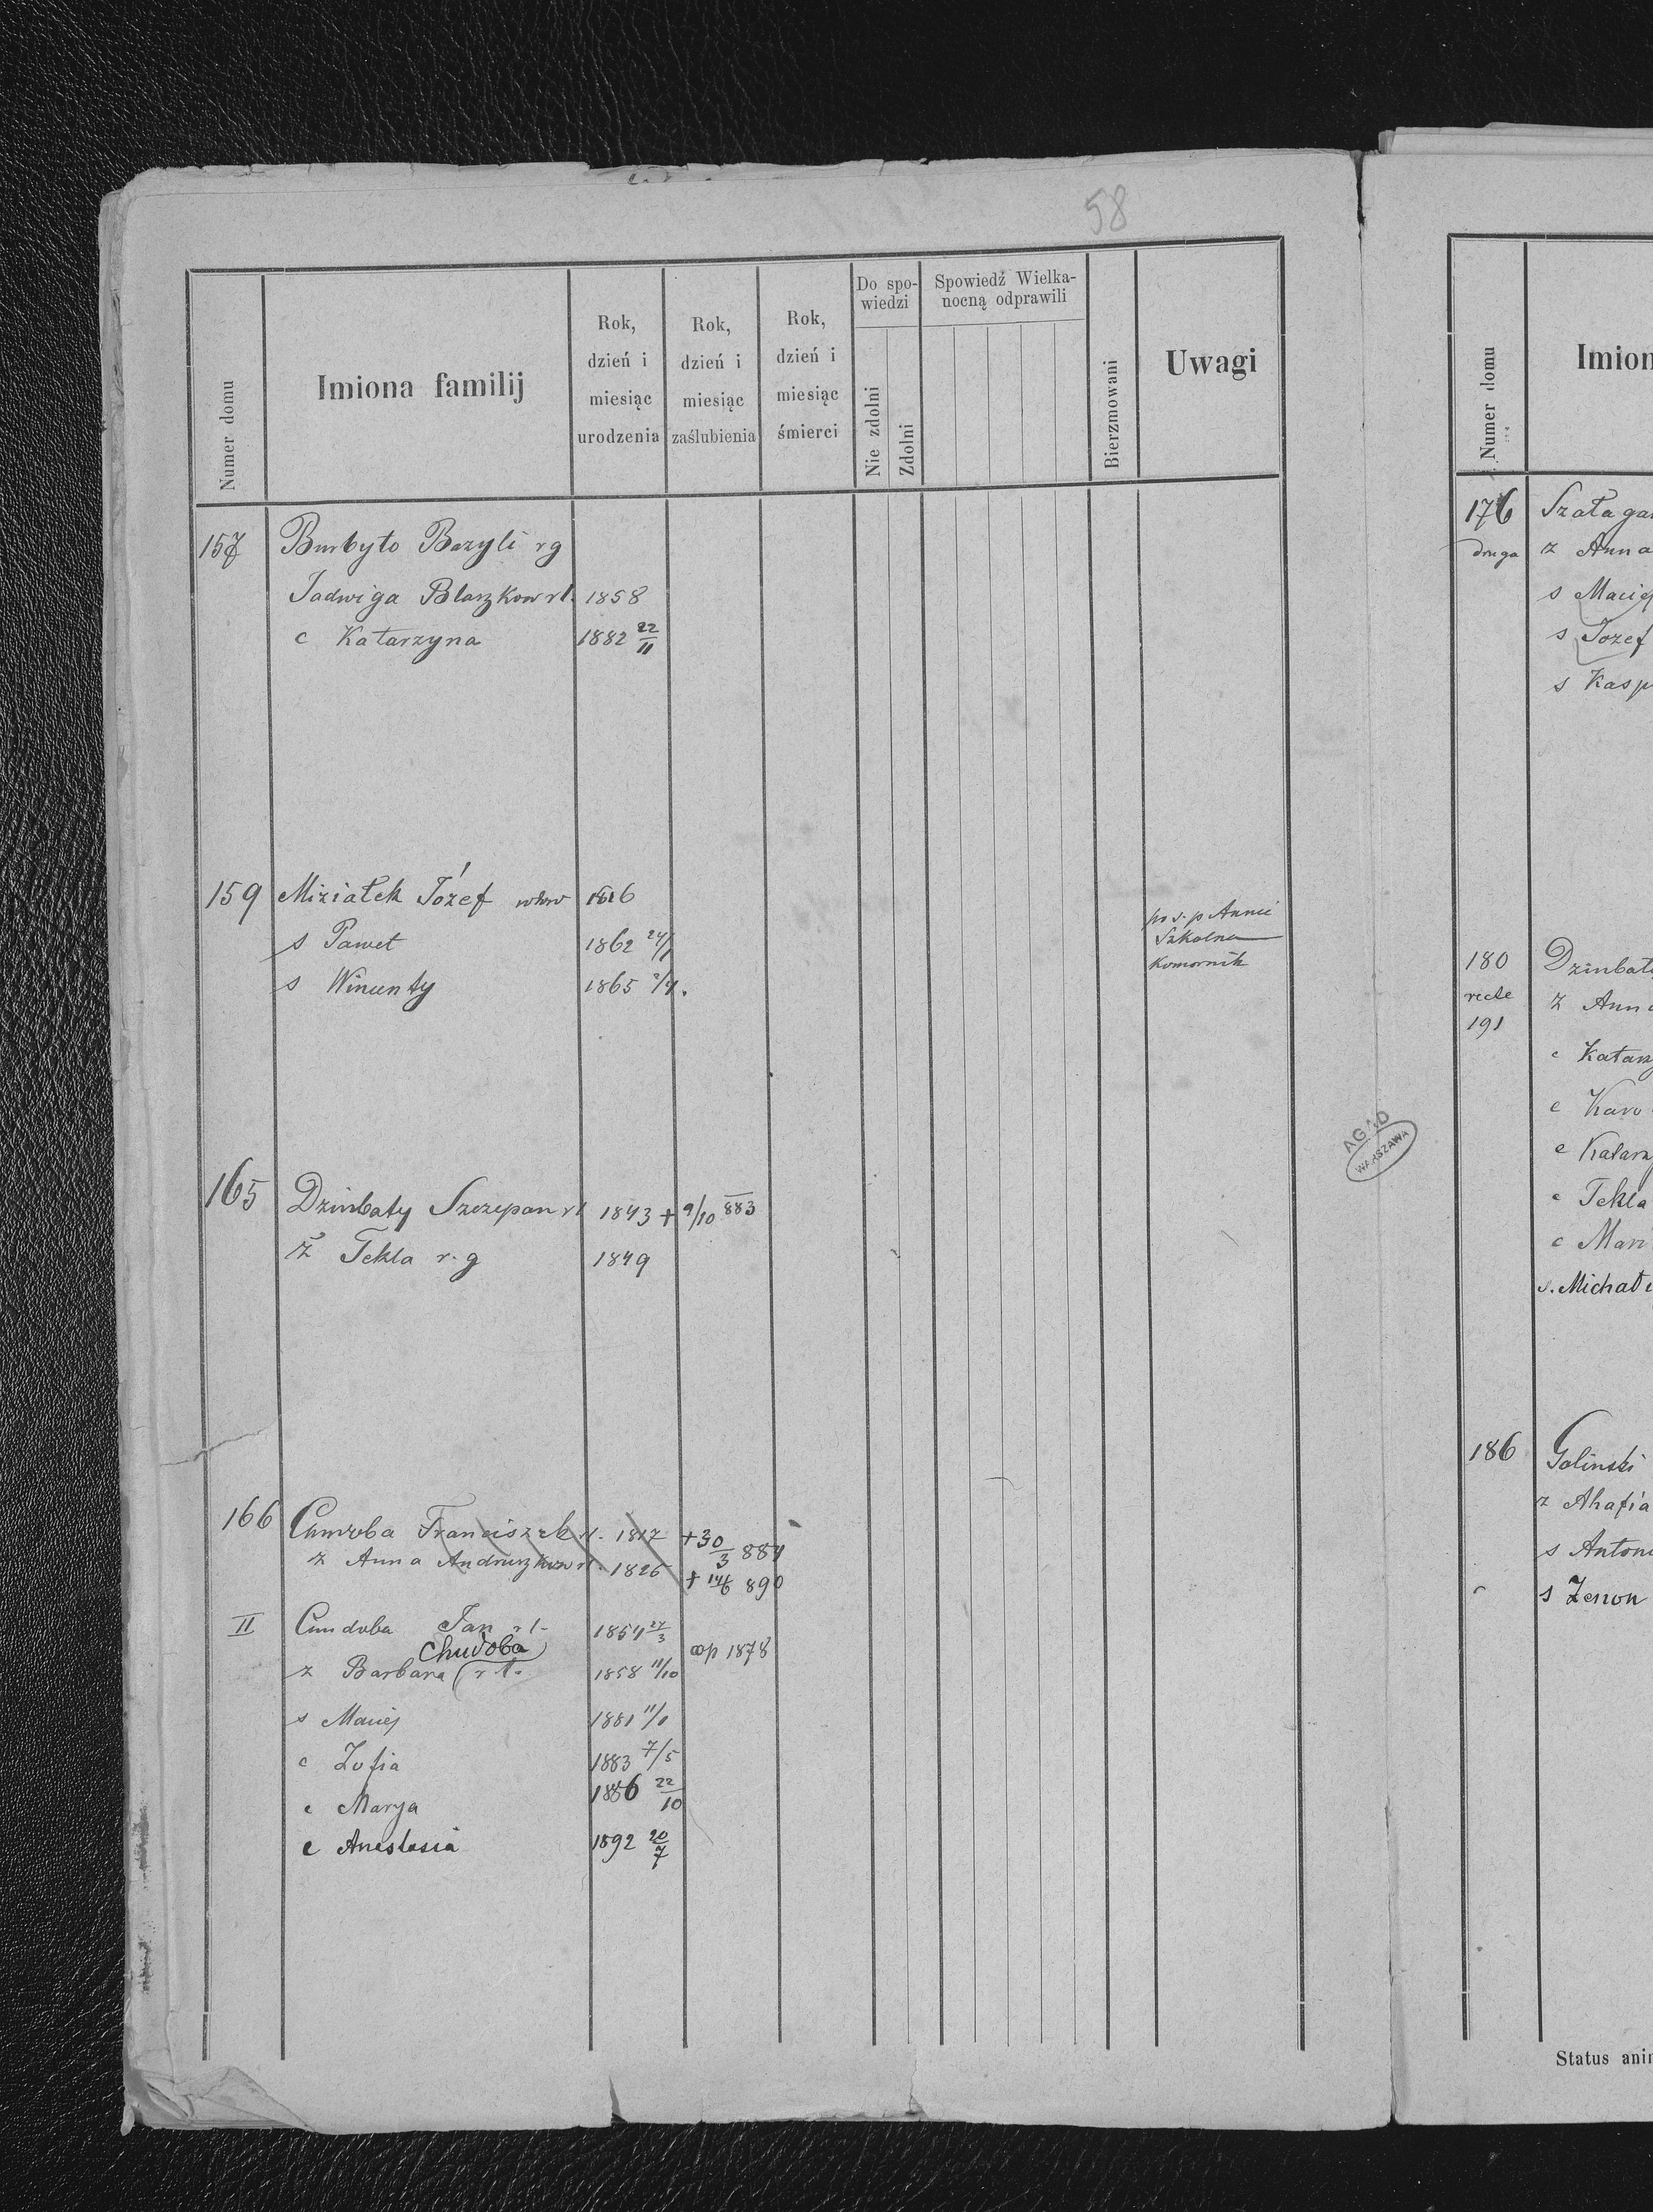 58
Numer domu
Imiona familij
Rok,
dzień i
miesiąc
urodzenia
Rok,
dzień i
miesiąc
zaślubienia
Rok,
dzień i
miesiąc
śmierci
Do spo-
wiedzi
Nie zdolni
Zdolni
Spowiedź Wielka-
nocną odprawili
Bierzmowani
Uwagi
157 Burbyło Bazyli rg
Jadwiga Blaszkow rł. 1858
c Katarzyna 1882 22/11
159 Miziałek Józef wdow 1816
s Paweł 1862 24/1
s Wincenty 1865 2/4.
po s. p Annie
Szkolna
Komornik
165 Dzinbaty Szczepan rł 1843 + 9/10 883
ż Tekla r.g 1849
166 Cundoba Franciszek rł. 1817 + 30/3 884
z Anna Andruszkow rł. 1826 + 14/6 890
II Cundoba Jan rł. 1854 27/3
Chudoba
cop 1878
z Barbara rł. 1858 11/10
s Maciej 1881 11/1
c Zofia 1883 7/5
c Marya 1886 22/10
c Anestasia 1892 20/7
AGAD
WARSZAWA
Numer domu
Imion
176 Szałaga
druga z Anna
s Maciej
s Jozef
s Kasp
180 Dzinbaty
recte z Anna
191
c Katarz
c Karo
c Katarz
c Tekla
c Mar
s. Michał
186 Golinski
z Ahafia
s Anton
s Zenon
Status anim